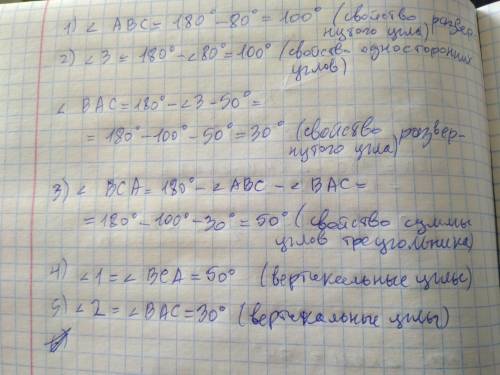 1) ∠ ABC = 180° - 80° = 100° (свойство развер-
нутого цгла)
2) ∠3 = 180° - ∠80° = 100° (свойств- односторонних
цглов)
∠ BAC = 180° - ∠3 - 50° =
= 180° - 100° - 50° = 30° (свойство развер-
нутого цгла)
3) ∠ BCA = 180° - ∠ ABC - ∠ BAC =
= 180° - 100° - 30° = 50° (свойство суммы
цглов треугольника)
4) ∠1 = ∠ BCA = 50° (вертикальные цглы)
5) ∠2 = ∠ BAC = 30° (вертикальные цглы)